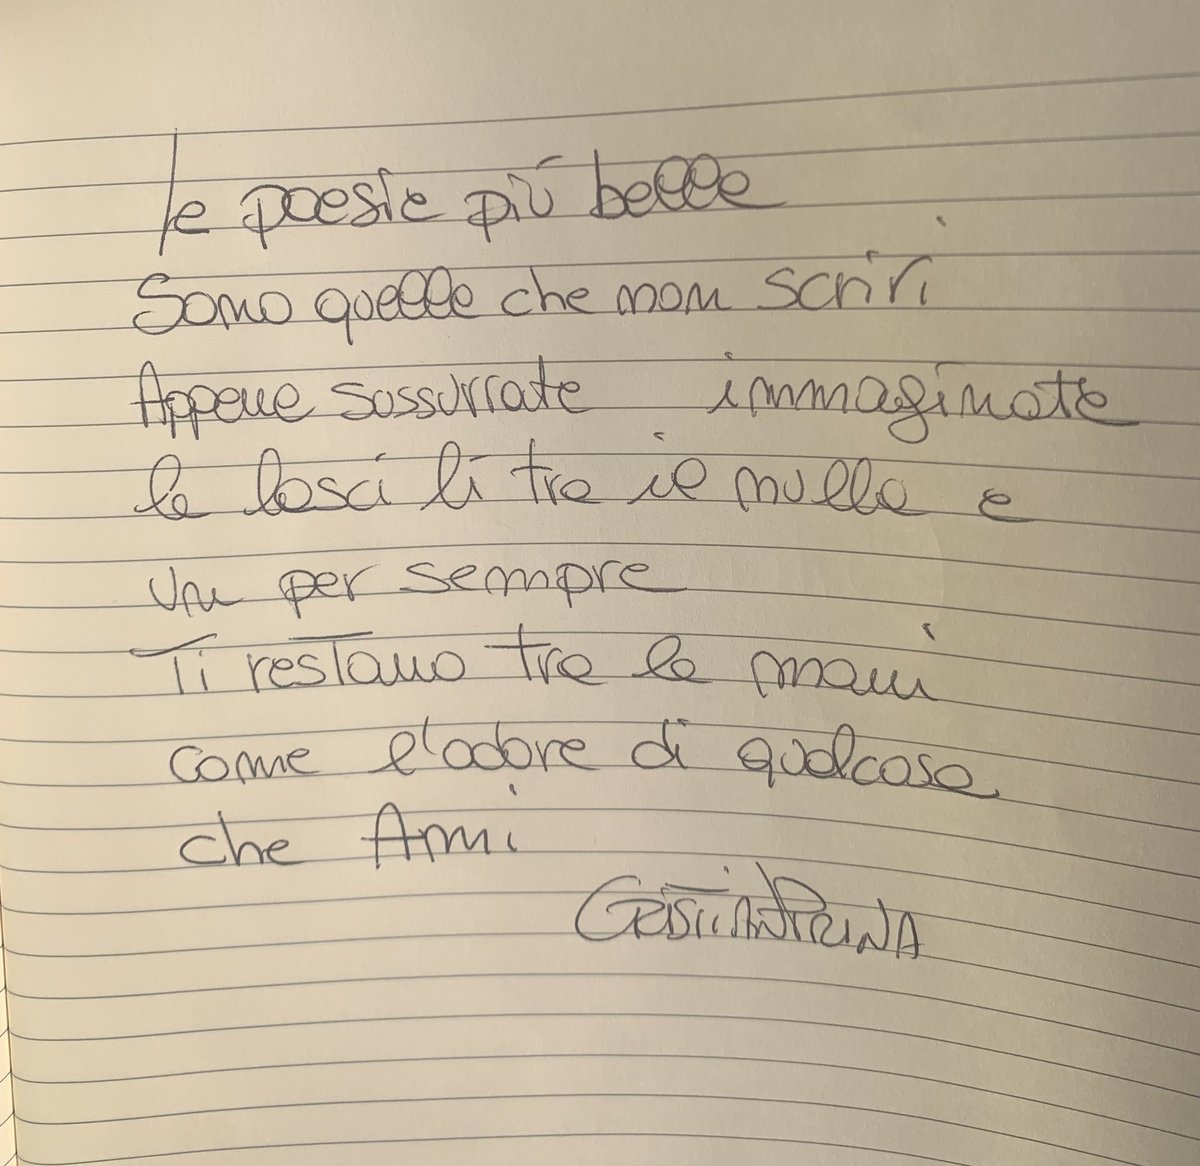 le poesie più belle
Sono quelle che non scrivi
Appena sussurrate immaginate
le lasci lì tra il nulla e
un per sempre
Ti restano tra le mani
come l'odore di qualcosa
che Ami
Cristian Prina